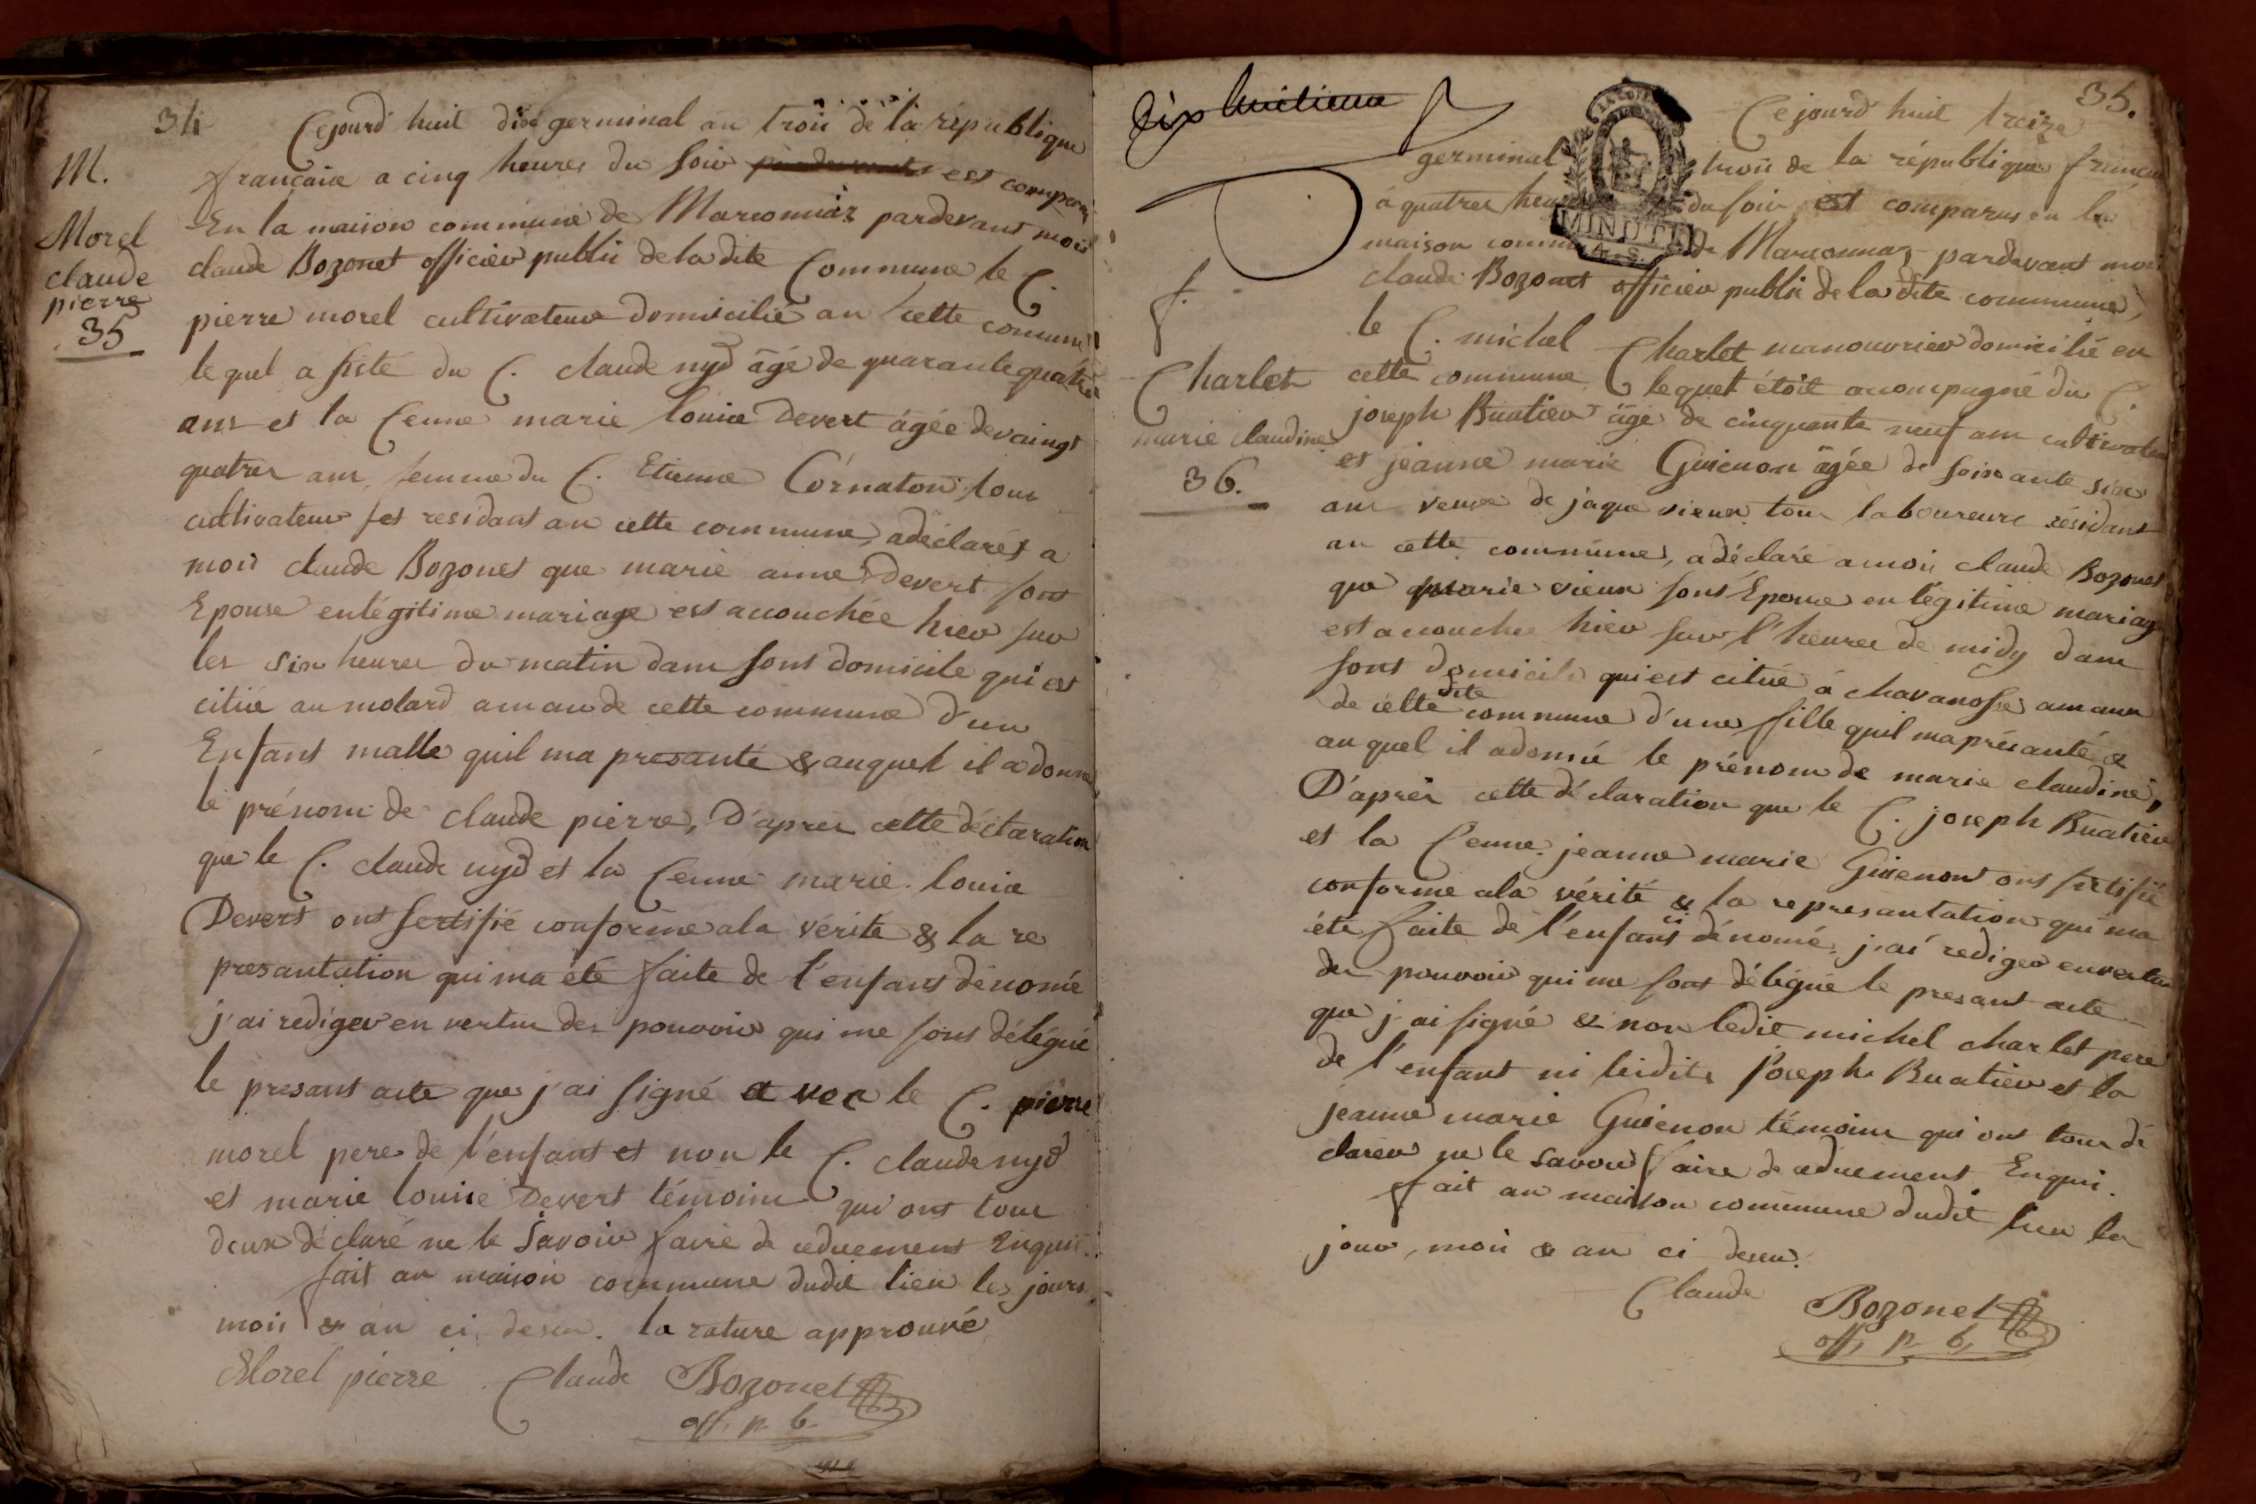 34
M.
Morel
claude
pierre
35
Cejourd'huit dix germinal an troii de la république
françaiæ a cinq heures du soir est comparu
En la maison commune de Marsonnaz pardevant moi
claude Bozonet officier public de la dite Commune le C.
pierre morel cultivateur domicilié an cette commune
lequel a sisté du C. claude nyd âgé de quarante quatre
ans et la Cenne marie louise Devert âgée devaingt
quatres ans, femme du C. Etienne Cornaton tous
cultivateurs et residant an cette commune, adéclarés a
moii claude Bozonet que marie anne Devert sont
Epouse enlégitime mariage est acouchée hier sur
les six heures du matin dans sont domicile qui est
citué au molard aman de cette commune d'un
Enfant malle quil ma presanté & auquel il a donné
le prénom de claude pierre, D'apres cette déclaration
que le C. claude nyd et la Cenne marie louise
Devert ont sertifié conforme ala vérité & la re
presantation qui ma été faite de l'enfant dénomé
j'ai rediger en vertu des pouvoir qui me sont délégué
le presant acte que j'ai signé avec le C. pierre
morel pere de l'enfant et non le C. claude nyd
et marie louise Devert témoins qui ont tous
deux déclaré ne le savoir faire de ceduement Enquit.
fait an maison commune dudit lieu les jours
mois & an ci desu. la rature approuvé
Morel pierre Claude Bozonet
off. p. b.
dix huitieme
35.
f.
Charlet
marie claudine
36.
Cejourd'huit treize
germinal troii de la république françai
á quatres heu du soir est comparus en la
maison commu de Marsonnaz pardevant moi
claude Bozonet officier public de la dite commune,
le C. michel Charlet manouvrier domicilié en
cette commune lequel étoit acompagné du C.
joseph Buatier âgé de cinquante neuf ans cultivateur
et jeanne marie Guienon âgée de soixante six
ans veuve de jaque vieux tous laboureurs résidant
an cette commune, adéclaré a moii claude Bozonet
que marie vieux sont Epouse en légitime mariag
est acouchée hier sur l'heures de midy dans
sont domicile qui est citué á chavanosse aman
de cette dite commune d'une fille quil ma présanté &
auquel il adonné le prénom de marie claudine,
D'aprés cette déclaration que le C. joseph Buatier
et la Cenne jeanne marie Guienon ont sertifié
conforme ala vérité & la represantation qui ma
été faite de l'enfant ci dénomé, j'ai rediger envertu
des pouvoir qui me sont délégué le presant acte
que j'ai signé & non ledit michel charlet pere
de l'enfant ni lesdits Joseph Buatier et la
jeanne marie Guienon témoins qui ont tous dé
clarér ne le savoir faire de ceduement Enqui.
fait an maison commune dudit lieu les
jour, moii & an ci desu.
Claude Bozonet
off. p. b.